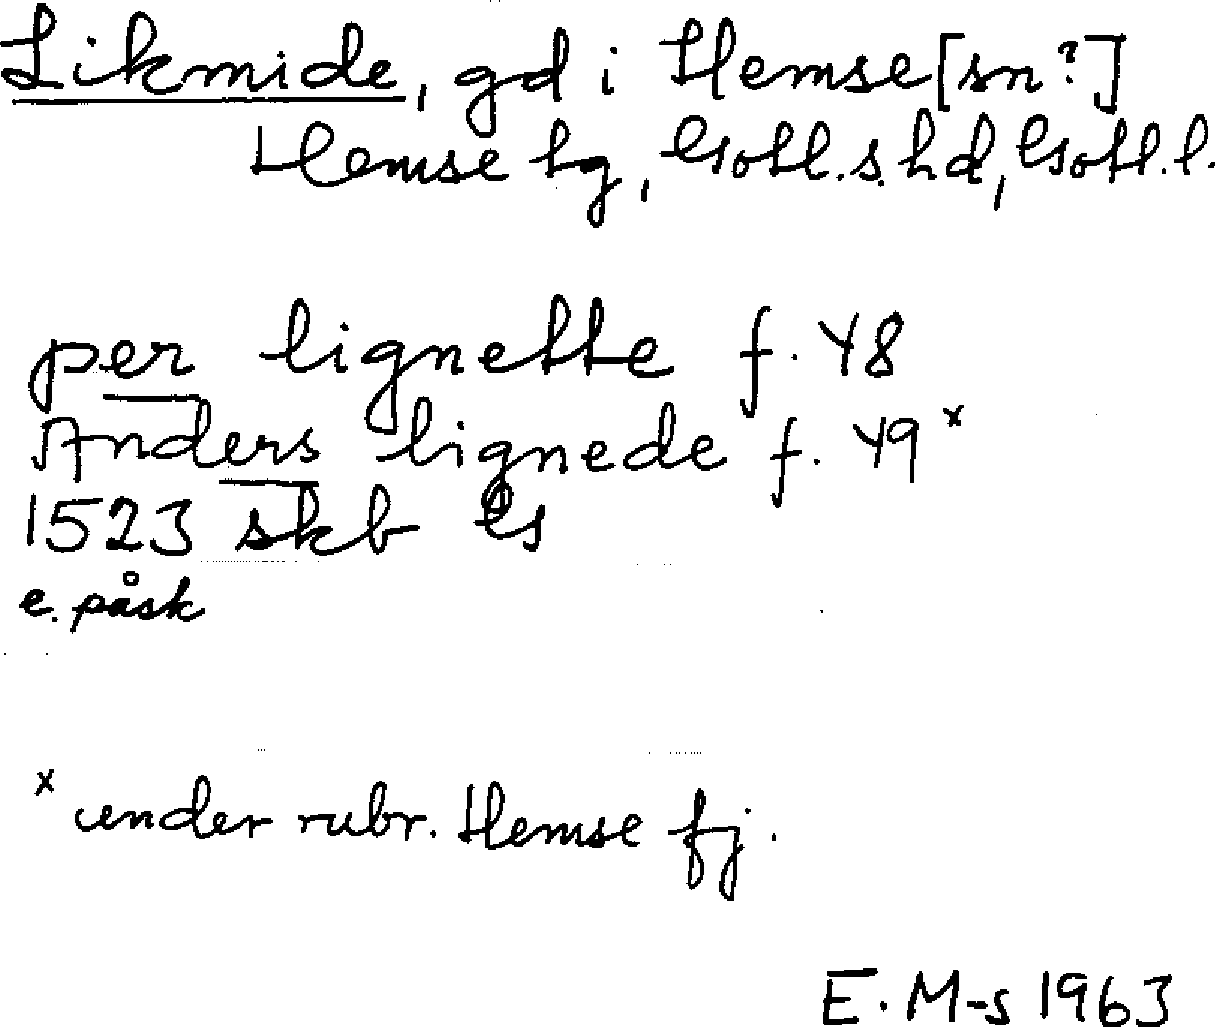 Likmide, gd i Hemse [sn?]
Hemse tg, Gotl. s. hd, Gotl. l.
per lignette f. 48
Anders lignede f. 49 x
1523 skb G
e. påsk
x under rubr. Hemse fj.
E. M-s 1963